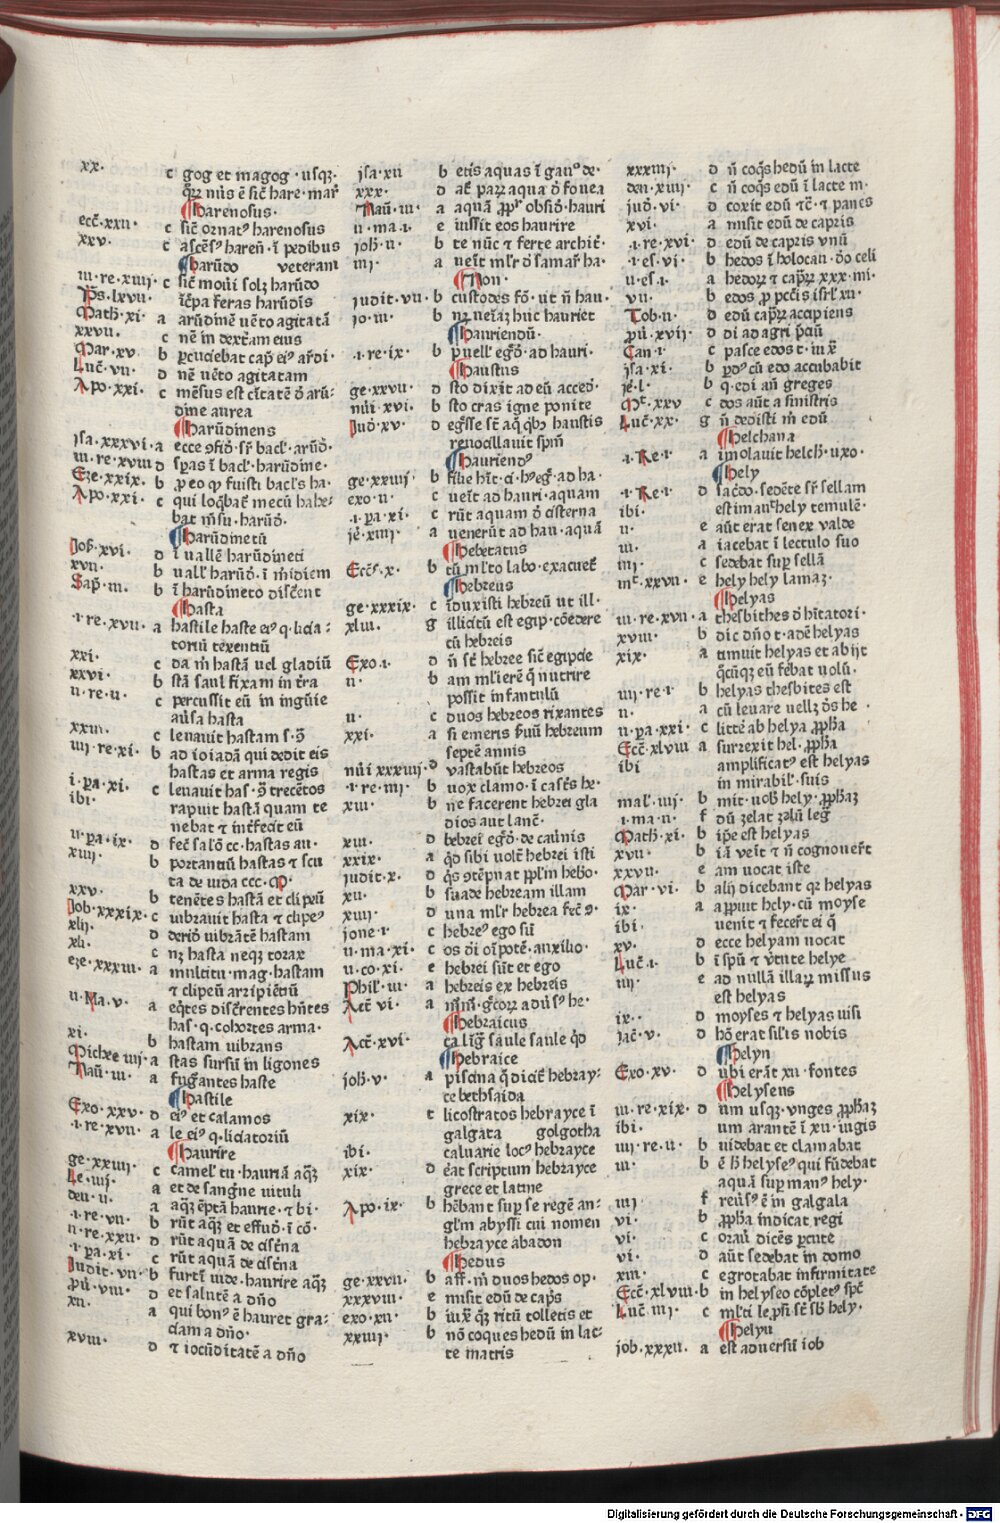 xx. c gog et magog · usqꝫ·
Harenosus·
eccͥ·xxii· c sic̄ ornatꝰ harenosus
xxv· c ascēsꝰ haren̄· ī pedibus
Harūdo veterani
iii·re·xiiii· c sic̄ moūi solꝫ harūdo
Ps̄·lxvii· īcͥpa feras harūdīs
Math·xi· a arūdinē uēto agitatā
xxvii· c nē in dext̄rā eius
Mar·xv b ꝑcuciebat cap̄ eiꝰ ar̄di·
Luc̄·vii· d nē uēto agitatam
Apo·xxi· c mēsus est cītatē d̄ arū⸗
dine aurea
Harūdineus
Isa·xxxvi· a ecce ꝯfid̄·sr̄ bacl̄·arūd̄·
iii·re·xviii d spas ī bacl̄·harūdine·
Eze·xxix· b ꝑ eo ꝙ fuisti baclꝰs ha·
Apo·xxi· c qui loqͣbat̄ mecū habe⸗
bat m̄su·harūd̄·
Harūdinetū
Job·xvi· d ī uallē harūdineti
xvii· b uall̄ harūd̄·ī m̄idiem
Sap̄·iii· b ī harūdineto disc̄ent
Hasta
·i·re·xvii· a hastile haste eiꝰ q·licia⸗
toriū texentiū
xxi· c da m̄ hastā uel gladiū
xxvi· b stā saul fixam in t̄ra
ii·re·ii· c percussit eū in ingūie
aūsa hasta
xxiii· c leuauit hastam s·ꝯ̄
iiii·re·xi· b ad ioiadā qui dedit eis
hastas et arma regis
i·pa·xi· c leuauit has·ꝯ̄ trecētos
ibi· rapuit hastā quam te
nebat ⁊ int̄fecit eū
ii·pa·ix· d fec̄ salō cc·hastas au·
xiiii· b portantiū hastas ⁊ scu
ta de iuda ccc·
xxv· b tenētes hastā et clipeū
Job·xxxix· c uibrauit hasta ⁊ clipeꝰ
xlii· d derid̄ uibrātē hastam
xli· c nꝫ hasta neqꝫ torax
eze·xxxiii· a multitu·mag·hastam
⁊ clipeū arripiētiū
ii·Ma·v· a eq̄tes discͥrentes hn̄tes
has·q·cohortes arma·
xi· b hastam uibrans
Michee iiii· a stas sursū in ligones
Naū·iii· a fugͣantes haste
Hastile
Exo·xxv· d eiꝰ et calamos
·i·re·xvii· a le eiꝰ q·liciatoriū
Haurire
ge·xxiiii· c camel̄ tu·hauriā aqͣꝫ
Le·iiii· a et de sangͥne uituli
deu·ii· a aqͣꝫ ēptā haurie·⁊ bi·
·i·re·vii· b rūt aqͣꝫ et effud̄·ī cō·
ii·re·xxiii· d rūt aquā de cist̄na
·i·pa·xi· c rūt aquā de cist̄na
Judit·vii· b furtī uide·haurire aqͣꝫ
pū·viii· d et salutē a dn̄o
xii· a qui bonꝰ ē hauret gra⸗
ciam a dn̄o·
xviii· d ⁊ iocūditatē a dn̄o
isa·xii b etis aquas ī gauͩͦ de·
xxx· d at̄ parꝫ aqua d̄ fouea
Naū·iii· a aquā ꝓpͭ obsid̄·hauri
ii·ma·i· e iussit eos haurire
joh̄·ii· b te nūc ⁊ ferte archit̄·
iiii· a ueīt ml̄r d̄ samar̄ ha·
Non·
judit·vii· b custodes fō·ut n̄ hau·
jo·iii· b nꝫ ueīaꝫ huc hauriet
Hauriendū·
·i·re·ix· b puell̄ egͣd̄·ad hauri·
Haustus
ge·xxvii· d sto dixīt ad eū acced̄·
nūi·xvi· b sto cras igne ponite
Jud̄·xv· d egͣsse st̄ aqͥ qͥbꝫ haustis
refocillauit spm̄
Hauriendꝰ
ge·xxiiii· b filie hīt·ci·hͥegͣd̄·ad ha·
exo·ii· c ueīt ad hauri·aquam
·i·pa·xi· c rūt aquam d̄ cisterna
jē·xiiii· a uenerūt ad hau·aquā
Hebetatus
Eccͥs·x· b tū ml̄to labo·exacuet̄
Hebreus
ge·xxxix· c īduxisti hebreū ut ill·
xliii· g illicitū est egip·cōedere
cū hebreis
Exo·i· d n̄ st̄ hebree sic̄ egipcie
ii· b am mlierē q̄ nutrire
possit infantulū
ii· c duos hebreos rixantes
xxi· a si emeris s̄uū hebreum
septē annis
nūi xxxiiii· d vastabūt hebreos
·i·re·iiii· b uox clamo·ī cast̄s he·
xiii· b ne facerent hebrei gla
dios aut lanc̄·
xiii· d hebrei egͥd̄·de cauīnis
xxix· a qͥd sibi uolūt hebrei isti
judit·x· d qͥs ꝯtēpnat ppl̄m heb̄o·
xii· b suade hebream illam
xiiii· d una ml̄r hebrea fec̄ ꝯ·
jone·i· c hebreꝰ ego sū
ii·ma·xi· c os d̄i oīpotē·auxilio·
ii·co·xi· e hebrei sūt et ego
Phil̄·iii· a hebreis ex hebreis
Act̄ vi· a mͥm̄·gͥcoꝝ aduꝰsꝰ he·
Hebraicus
Act̄·xvi· ca līgͣ saule saule qͥd
Hebraice
joh̄·v· a piscina q̄ dicit̄ hebray⸗
ce bethsaida
xix· c licostratos hebrayce ī
galgata golgotha
ibi· caluarie locꝰ hebrayce
xix· d ēat scriptum hebrayce
grece et latine
Apo·ix· b hēbant suꝑ se regē an⸗
gl̄m abyssi cui nomen
hebrayce abadon
Hedus
ge·xxvii· b aff̄·m̄ duos hedos op·
xxxviii· e misit edū de capͥs
exo·xii· b iuxͣ qͣꝫ ritū tolletis et
xxiiii· b nō coques hedū in lac⸗
te matris
xxxiiii· d n̄ coqͥs hedū in lacte
deu·xiiii· c n̄ coqͥs edū ī lacte m·
jud̄·vi· d coxit edū ⁊c̄·⁊ panes
xvi· a misit edū de capris
·i·re·xvi· d edū de capris vnū
·i·es·vi· b hedos ī holocau·d̄o celi
ii·es·i· a hedoꝝ ⁊ capͣꝝ xxx·mi·
vii· b edos ꝓ pccīs isrl̄·xii·
Tob·ii· d edū capͣꝝ accipiens
pū·xvii· d di ad agni pͣdiū
Can·i· c pasce edos t·iuxͣ
isa·xi· b pͣdꝰ cū edo accubabit
jē·l· b q·edi an̄ greges
Mt̄·xxv c dos aūt a sinistris
Luc̄·xx· g n̄ dedisti m̄ edū
Helchana
·i·Re·i· a īmolauit helch·uxo·
Hely
·i·Re·i· d sac̄do·sedēte sr̄ sellam
ibi· estimaut̄ hely temulē·
ii· e aūt erat senex valde
iii· a iacebat ī lectulo suo
iiii· c sedebat suꝑ sellā
mt̄·xxvii· e hely hely lamaꝫ·
Helyas
iii·re·xvii· a thesbithes d̄ hītatori·
xviii· b dic dn̄o t·adē helyas
xix· a timuit helyas et abijt
qͣcūqꝫ eū fēbat uolū·
iiii·re·i· b helyas thesbites est
ii· a cū leuare uellꝫ dꝰs he·
ii·pa·xxi· c litt̄e ab helya ꝓph̄a
Ecc̄·xlviii a surrexit hel·ꝓph̄a
ibi amplificatꝰ est helyas
in mirabil̄·suis
mal̄·iiii· b mit·uob̄ hely·ꝓph̄aꝫ
·i·ma·ii· f dū zelat zelū leḡ
Math̄·xi· b ip̄e est helyas
xvii· b iā veīt ⁊ n̄ cognouer̄t
xxvii· e am uocat iste
Mar·vi· b alij dicebant qꝛ helyas
ix· a appuit hely·cū moyse
ibi· uenit ⁊ fecer̄t ei q̄
xv· d ecce helyam uocat
Luc̄·i· b ī spū ⁊ v̄tute helye
iiii· e ad nullā illaꝝ missus
est helyas
ix·· d moyses ⁊ helyas uisi
jac̄·v· d hō erat sil̄is nobis
Helyn
Exo·xv· d ubi erāt xii·fontes
Helyseus
iii·re·xix· d um usqꝫ·vnges ꝓph̄aꝫ
ibi· um arantē ī xii·iugis
iiii·re·ii· b uidebat et clamabat
iii· b ē h̄ helyseꝰ qui fūdebat
aquā suꝑ manꝰ hely·
iiii f reūsꝰ ē in galgala
vi· b ꝓph̄a indicat regi
vi· c orauͭ dicēs ꝑcute
vi· d aūt sedebat in domo
xiii· c egrotabat infirmitate
Ecc̄·xlviii· b in helyseo cōpletꝰ spc̄
Luc̄·iiii· c ml̄ti lepͥsi st̄ sb̄ hely·
Helyu
job·xxxii· a est aduersū iob
Digitalisierung gefördert durch die Deutsche Forschungsgemeinschaft · DFG